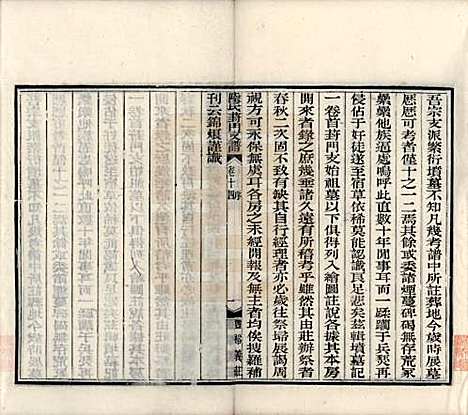 吾宗支派蕃衍墳墓不知凡幾考譜中所註葬地今或時展墓
歷歷可考者僅十之一二焉其餘或委諸煙蔓碑碣無存荒冢
纍纍他族逼處嗚呼此直數十年間事耳而一蹂躪于兵燹再
侵佔于奸徒遂至宿草依稀莫能認識良足悲矣茲輯墳墓記
一卷首葑門支始祖墓以下俱得列入繪圖註說各據其本房
開來者錄之庶幾垂諸久遠有所稽考乎雖然其由莊辦祭者
春秋二次固不致有缺其自行經理者亦必歲往祭埽展謁周
視方可永保無虞耳各房之未經開報及無主者均俟搜羅補
刊云錦焜謹識
陸氏葑門支譜
卷十四
豐裕義莊